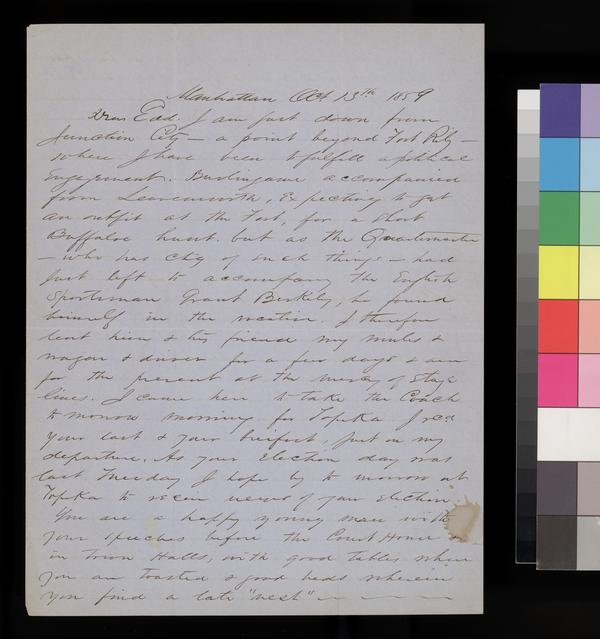 Manhattan Oct 13th 1859
Dear Edd. I am just down from
Junction City — a point beyond Fort Rily —
where I have been to fulfill a political
Engagement. Burlingame accompanied
from Leavenworth, Expecting to get
an outfit at the Fort, for a short
Buffaloe hunt. but as the Quartermaster
— who has chg of such things — had
just left to accompany the English
Sportsman Grant Berkily, he found
himself in the
I therefore
lent him & his friend my mules &
wagon & driver for a few days & am
for the present at the mercy of Stage
lines. I came here to take the Coach
to morrow morning for Topeka I recd
your last & your just on my
departure. As your Election day was
last Tuesday I hope by to morrow at
Topeka to receive news of your election
You are a happy young man with
your speeches before the Court House &
in town Halls, with good tables where
you are toasted & good beds wherein
you find a late "nest"